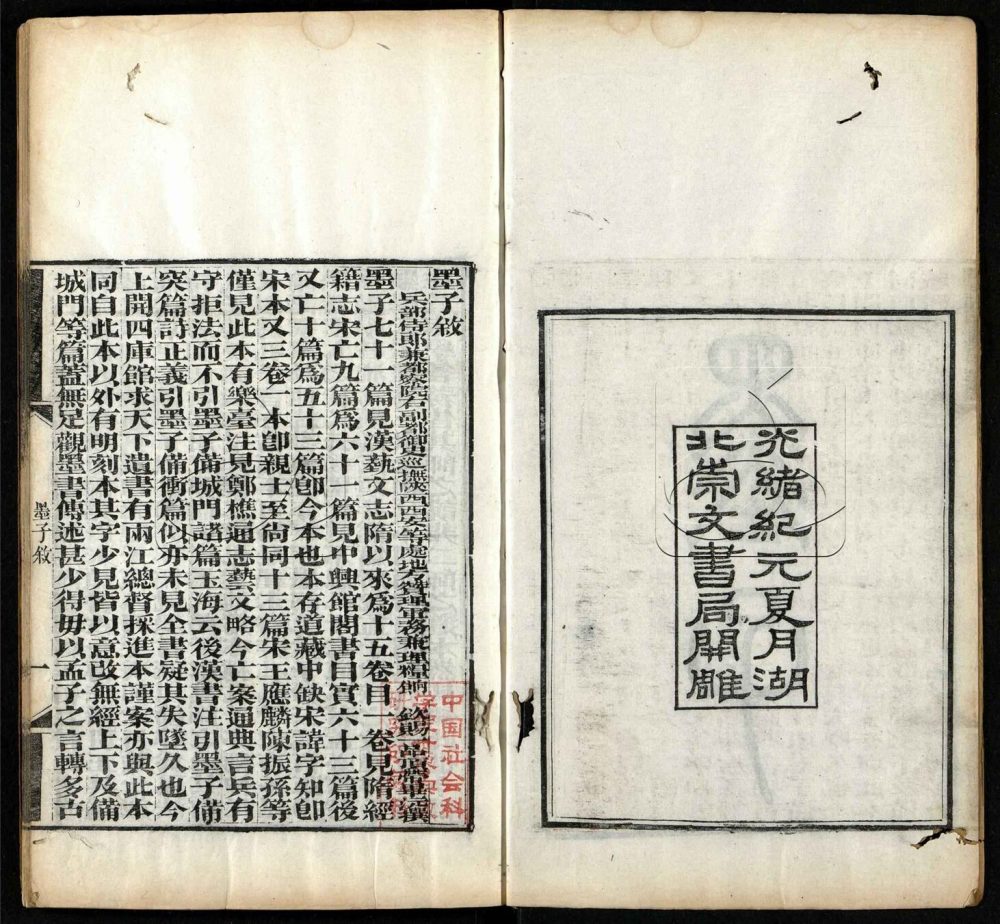 光緒紀元夏月湖
北崇文書局開雕
墨子敘
兵部侍郎兼都察院右副都御史巡撫陝西西安等處地方贊理軍務兼理糧餉 欽賜
墨子七十一篇見漢藝文志隋以來為十五卷目一卷見隋經
籍志宋亡九篇為六十一篇見中興館閣書目實六十三篇後
又亡十篇為五十三篇卽今本也本存道藏中缺宋諱字知卽
宋本又三卷一本卽親士至尙同十三篇宋王應麟陳振孫等
僅見此本有樂臺注見鄭樵通志藝文略今亡案通典言兵有
守拒法而不引墨子備城門諸篇玉海云後漢書注引墨子備
突篇詩正義引墨子備衝篇似亦未見全書疑其失墜久也今
上開四庫館求天下遺書有兩江總督採進本謹案亦與此本
同自此本以外有明刻本其字少見皆以意改無經上下及備
城門等篇蓋無足觀墨書傳述甚少得毋以孟子之言轉多古
墨子敘
一
中国社会科